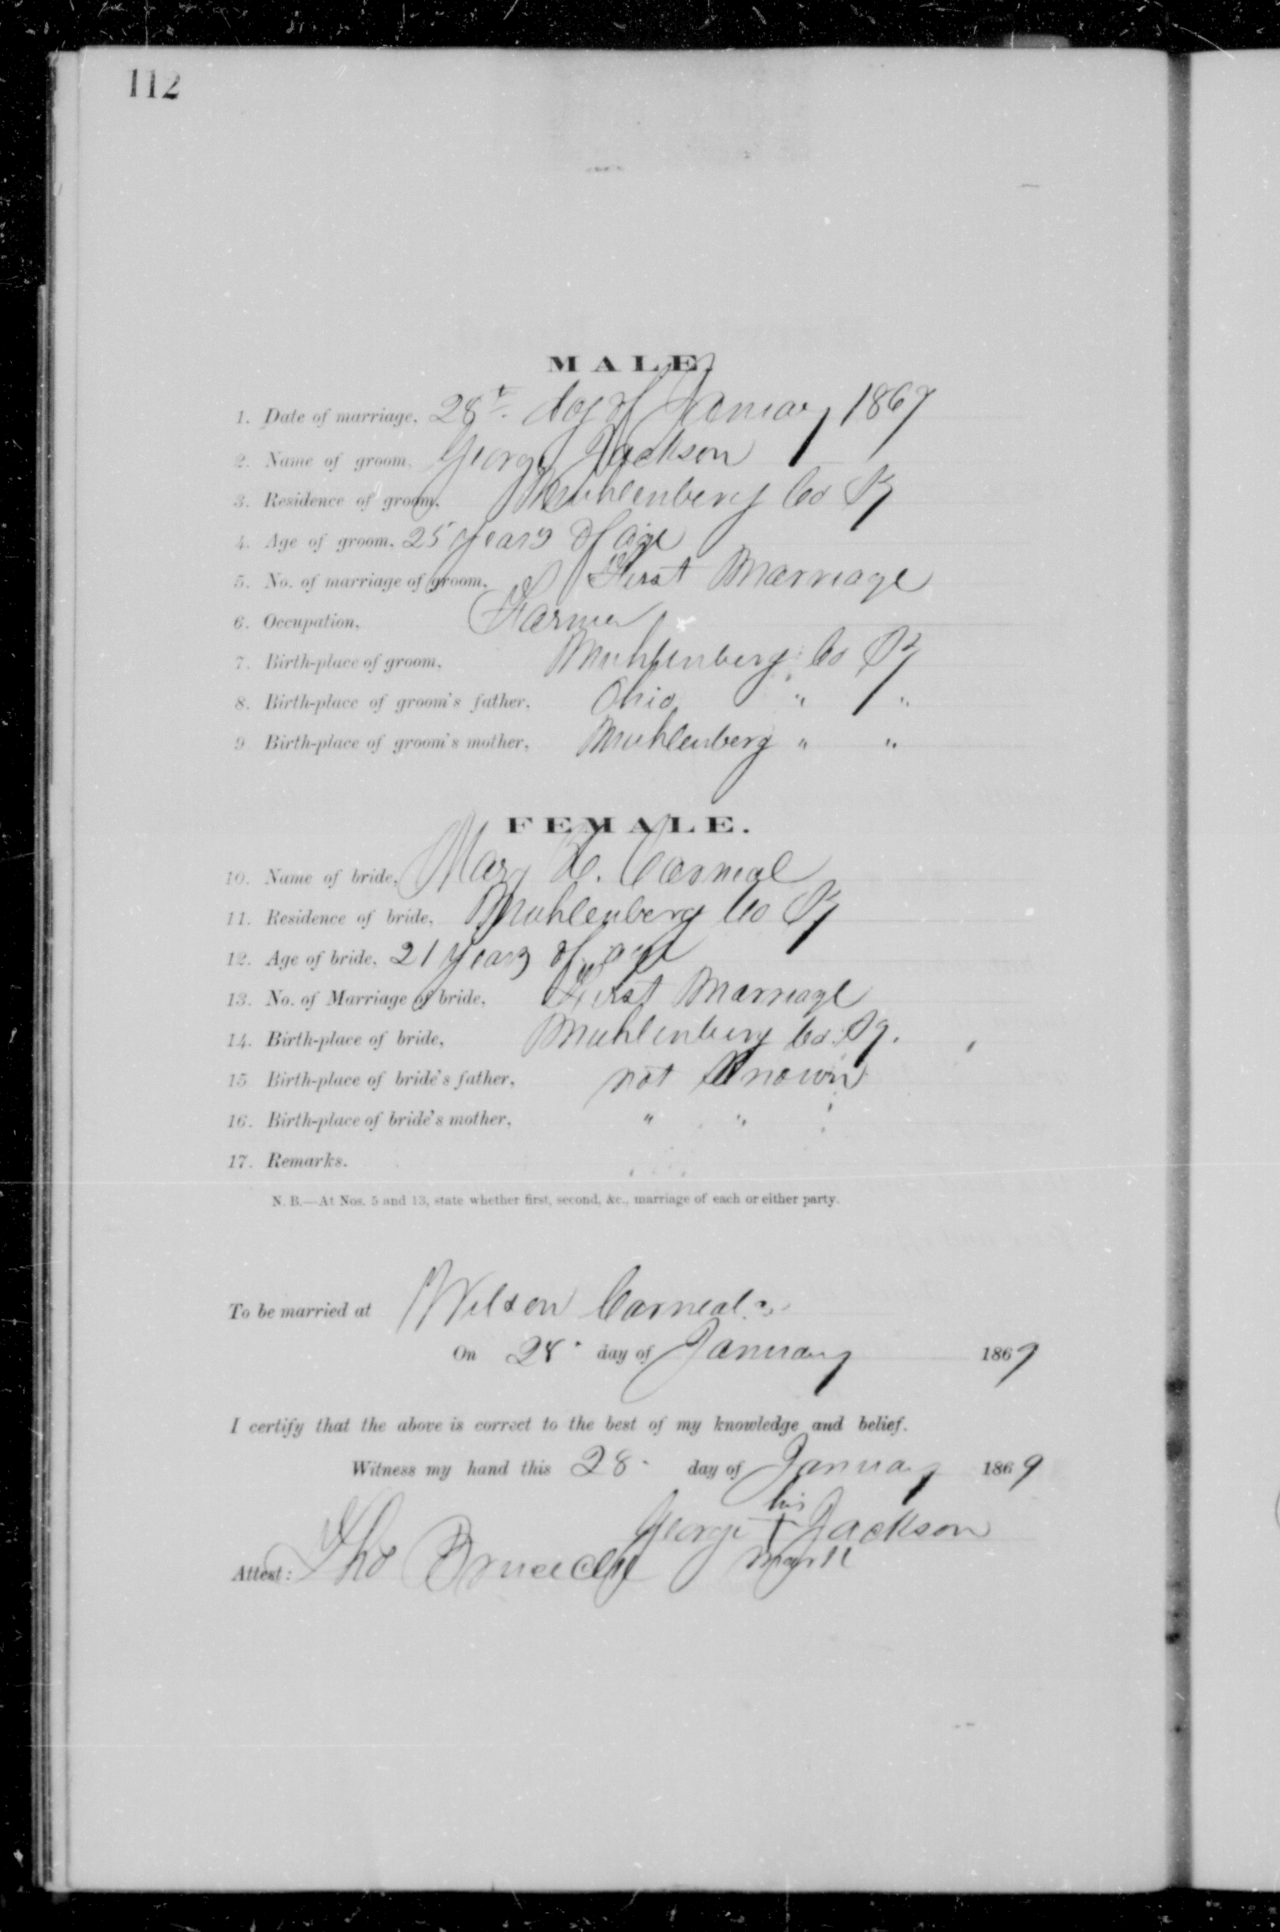 112
MALE.
1. Date of marriage, 28th day of January 1869
2. Name of groom, George Jackson
3. Residence of groom, Muhlenberg Co Ky
4. Age of groom, 25 years of age
5. No. of marriage of groom, First Marriage
6. Occupation, Farmer
7. Birth-place of groom, Muhlenberg Co Ky
8. Birth-place of groom's father, Ohio " "
9 Birth-place of groom's mother, Muhlenberg " "
FEMALE.
10. Name of bride, Mary E. Carneal
11. Residence of bride, Muhlenberg Co Ky
12. Age of bride, 21 years of age
13. No. of Marriage of bride, First Marriage
14. Birth-place of bride, Muhlenberg Co. Ky.
15 Birth-place of bride's father, not Known
16. Birth-place of bride's mother, " "
17. Remarks.
N. B.—At Nos. 5 and 13, state whether first, second, &c., marriage of each or either party.
To be married at Wilson Carneal's
On 28 day of January 1869
I certify that the above is correct to the best of my knowledge and belief.
Witness my hand this 28 day of January 1869
his
George + Jackson
mark
Attest: Tho